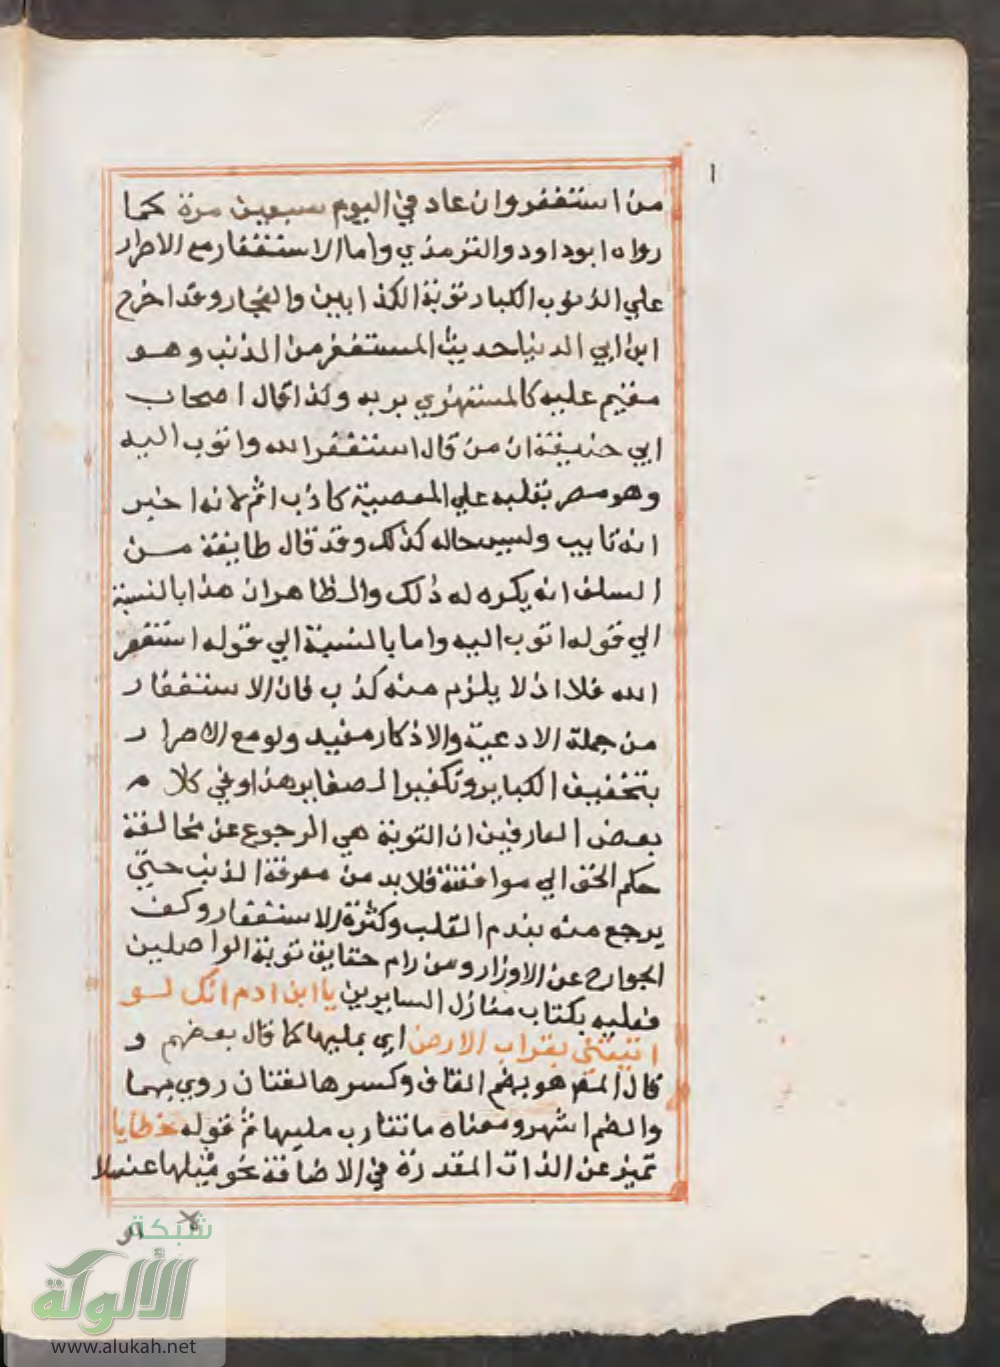 ١
من استغفر وان عاد في اليوم سبعين مرة كما
رواه ابو داود والترمذي واما الاستغفار مع الاصرار
علي الذنوب الكبار توبة الكذابين والفجار وقد اخرج
ابن ابي الدنيا حديث المستغفر من الذنب وهو
مقيم عليه كالمستهزي بربه وكذا قال اصحاب
ابي حنيفة ان من قال استغفر الله واتوب اليه
وهو مصر بقلبه علي المعصية كاذب اثم لانه اخبر
انه تايب وليس حاله كذلك وقد قال طايفة من
السلف انه يكره له ذلك والظاهر ان هذا بالنسبة
الي قوله اتوب اليه واما بالنسبة الي قوله استغفر
الله فلا اذ لا يلزم منه كذب فان الاستغفار
من جملة الادعية والاذكار مفيد ولو مع الاصرار
بتخفيف الكباير وتكفير الصغاير هذا وفي كلام
بعض العارفين ان التوبة هي الرجوع عن مخالفة
حكم الحق الي موافقته فلا بد من معرفة الذنب حتي
يرجع منه بندم القلب وكثرة الاستغفار وكف
الجوارح عن الاوزار ومن رام حقايق توبة الواصلين
فعليه بكتاب منازل السايرين يا ابن ادم انك لو
اتيتني بقراب الارض اي بمليها كما قال بعضهم و
قال المص هو بضم القاف وكسرها لغتان روي بهما
والضم اشهر ومعناه ما تقارب مليها ثم قوله خطايا
تميز عن الذات المقدرة في الاضافة نحو مثلها عسلا
شبكة
الألوكة
www.alukah.net